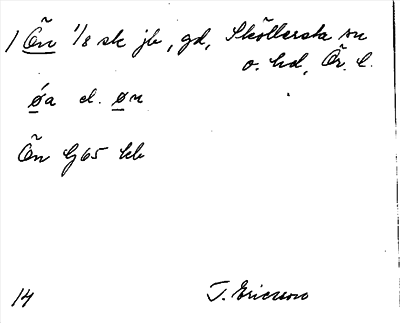 1 Ön 1/8 sk jb, gd, Sköllersta sn
o. hd, Ör. l.
ǿa el. øn
Ön G65 kb
14 T. Ericsson